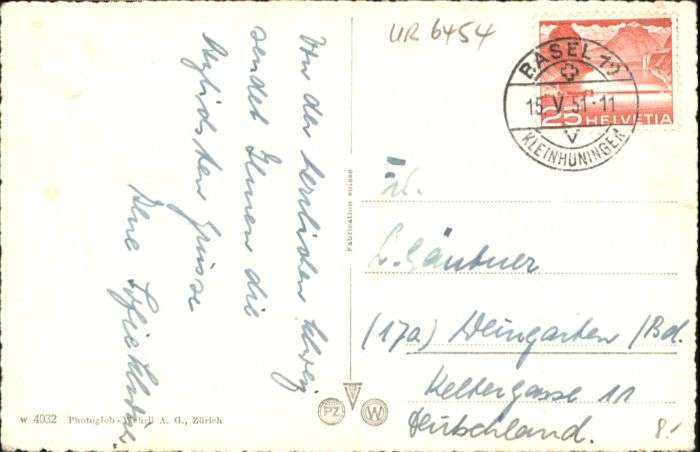 UR 6454
BASEL 19
15.V.51-11
KLEINHÜNINGEN
25 HELVETIA
Von der herrlichen Schweiz
sendet Ihnen die
herzlichsten Grüsse
Ihre
Fabrication suisse
L. Gäntner
(17a) Weingarten / Bd.
Keltergasse 11
Deutschland.
8.-
PZ W
W 4032 Photoglob-Wehrli A. G., Zürich